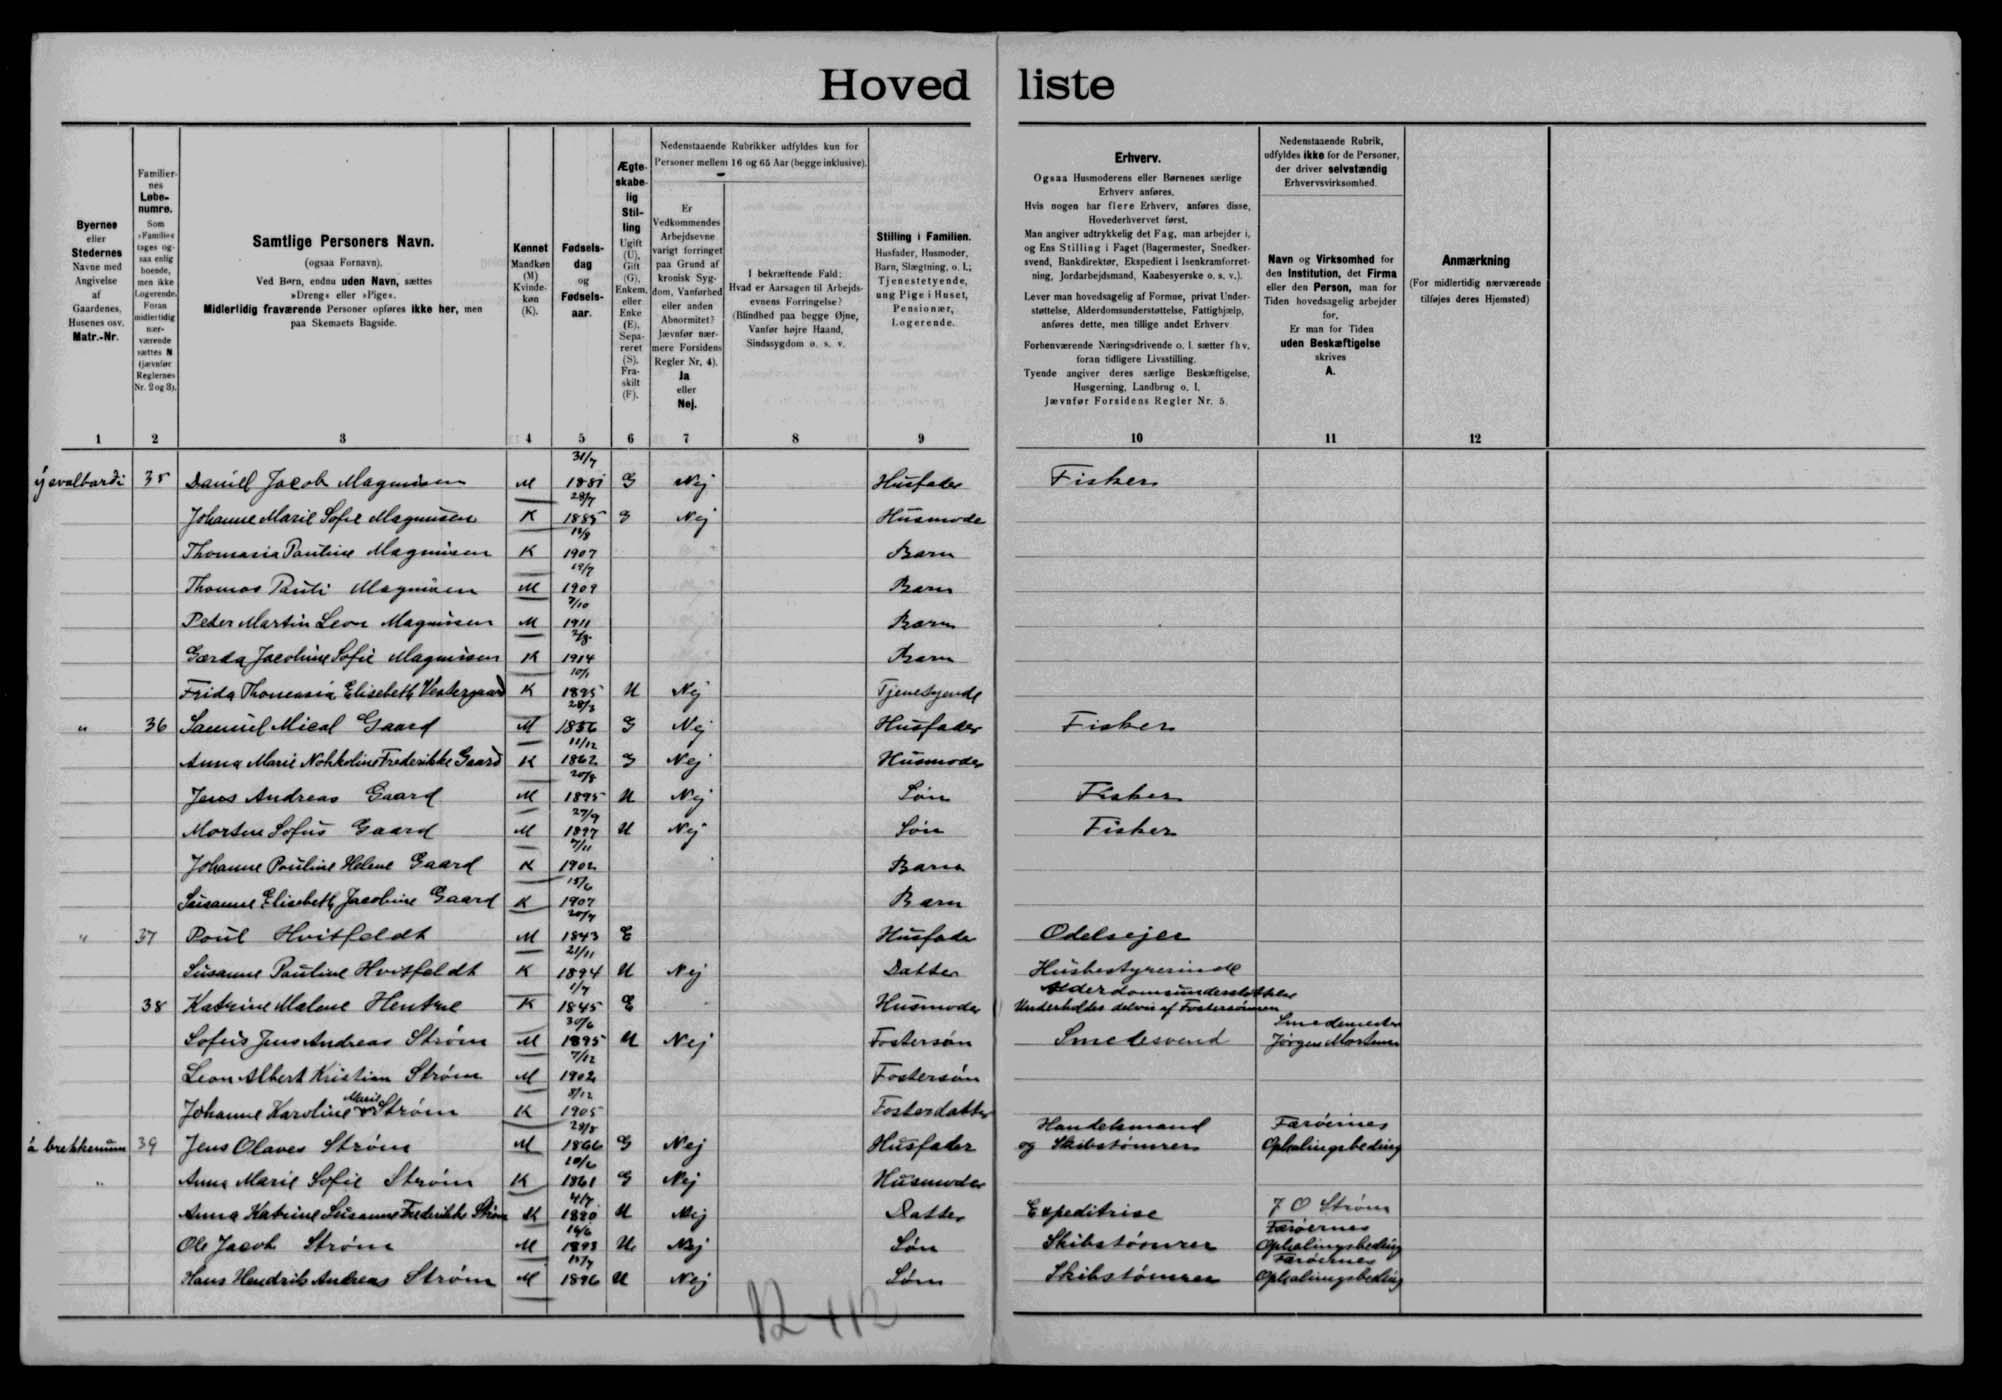 Hoved liste
Byernes eller Stedernes Navne med Angivelse af Gaardenes, Husenes osv. Matr.-Nr.
Familiernes Løbenumre. Som »Familie« tages ogsaa enlig boende, men ikke Logerende. Foran midlertidig nærværende sættes N (jævnfør Reglernes Nr. 2 og 3).
Samtlige Personers Navn.
(ogsaa Fornavn).
Ved Børn, endnu uden Navn, sættes
»Dreng« eller »Pige«.
Midlertidig fraværende Personer opføres ikke her, men
paa Skemaets Bagside.
Kønnet Mandkøn (M) Kvindekøn (K).
Fødselsdag og Fødselsaar.
Ægteskabelig Stilling Ugift (U), Gift (G), Enkem. eller Enke (E), Separeret (S). Fraskilt (F).
Nedenstaaende Rubrikker udfyldes kun for
Personer mellem 16 og 65 Aar (begge inklusive).
Er Vedkommendes Arbejdsevne varigt forringet paa Grund af kronisk Sygdom, Vanførhed eller anden Abnormitet? Jævnfør nærmere Forsidens Regler Nr. 4). Ja eller Nej.
I bekræftende Fald: Hvad er Aarsagen til Arbejdsevnens Forringelse? (Blindhed paa begge Øjne, Vanfør højre Haand, Sindssygdom o. s. v.
Stilling i Familien.
Husfader, Husmoder, Barn, Slægtning, o. l.; Tjenestetyende, ung Pige i Huset, Pensionær, Logerende.
Erhverv.
Ogsaa Husmoderens eller Børnenes særlige
Erhverv anføres.
Hvis nogen har flere Erhverv, anføres disse,
Hovederhvervet først.
Man angiver udtrykkelig det Fag, man arbejder i,
og Ens Stilling i Faget (Bagermester, Snedkersvend, Bankdirektør, Ekspedient i Isenkramforretning, Jordarbejdsmand, Kaabesyerske o. s. v.).
Lever man hovedsagelig af Formue, privat Understøttelse, Alderdomsunderstøttelse, Fattighjælp,
anføres dette, men tillige andet Erhverv
Forhenværende Næringsdrivende o. l. sætter fhv.
foran tidligere Livsstilling.
Tyende angiver deres særlige Beskæftigelse,
Husgerning, Landbrug o. l.
Jævnfør Forsidens Regler Nr. 5.
Nedenstaaende Rubrik,
udfyldes ikke for de Personer,
der driver selvstændig
Erhvervsvirksomhed.
Navn og Virksomhed for
den Institution, det Firma
eller den Person, man for
Tiden hovedsagelig arbejder
for.
Er man for Tiden
uden Beskæftigelse
skrives
A.
Anmærkning
(For midlertidig nærværende
tilføjes deres Hjemsted)
1 2 3 4 5 6 7 8 9 10 11 12
35 Daniel Jacob Magnusen M 31/7 1881 G Nej Husfader Fisker
Johanne Marie Sofie Magnusen K 28/7 1885 G Nej Husmode
Thomasia Pauline Magnusen K 1907 Barn
Thomas Pauli Magnusen M 19/7 1909 Barn
Peter Martin Leon Magnusen M 7/10 1911 Barn
Gærda Jacobine Sofie Magnusen K 2/8 1914 Barn
Frida Thomasia Elisebeth Vestergaard K 10/1 1895 U Nej Tjenestyende
" 36 Samuel Mical Gaard M 1856 G Nej Husfader Fisker
Anna Marie Nohkoline Frederikke Gaard K 11/12 1862 G Nej Husmoder
Jens Andreas Gaard M 20/8 1895 U Nej Søn Fisker
Morten Sofus Gaard M 27/9 1897 U Nej Søn Fisker
Johanne Pauline Helene Gaard K 7/11 1902 Barn
Susanne Elisebeth Jacobine Gaard K 15/6 1907 Barn
" 37 Poul Hvitfeldt M 1843 E Husfader Odelsejer
Susanne Pauline Hvitfeldt K 21/11 1894 U Nej Datter Husbestyrerinde
38 Katrine Malene Hentze K 1/7 1845 E Husmoder Alderdomsunderstøttelse
Underholdes delvis af Fostersønnen
Sofus Jens Andreas Strøm M 30/6 1895 U Nej Fostersøn Smedesvend Smedemester Jørgen Mortensen
Leon Albert Kristian Strøm M 7/12 1902 Fostersøn
Johanne Karoline Marie Strøm K 8/12 1905 Fosterdatter
á brekkenum 39 Jens Olaves Strøm M 28/8 1866 G Nej Husfader Handelsmand og Skibstømrer Færøernes Ophalingsbeding
" Anna Marie Sofie Strøm K 1861 G Nej Husmoder
Anna Katrine Susanne Frederikke Strøm K 4/7 1890 U Nej Datter Expeditrise J O Strøm
Ole Jacob Strøm M 1893 U Nej Søn Skibstømrer Færøernes Ophalingsbeding
Hans Hendrik Andreas Strøm M 1896 U Nej Søn Skibstømrer Færøernes Ophalingsbeding